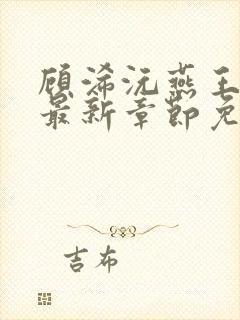 顾浠沅燕王
最新章节免
吉布